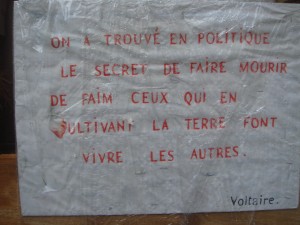 ON A TROUVÉ EN POLITIQUE
LE SECRET DE FAIRE MOURIR
DE FAIM CEUX QUI EN
CULTIVANT LA TERRE FONT
VIVRE LES AUTRES.
Voltaire.